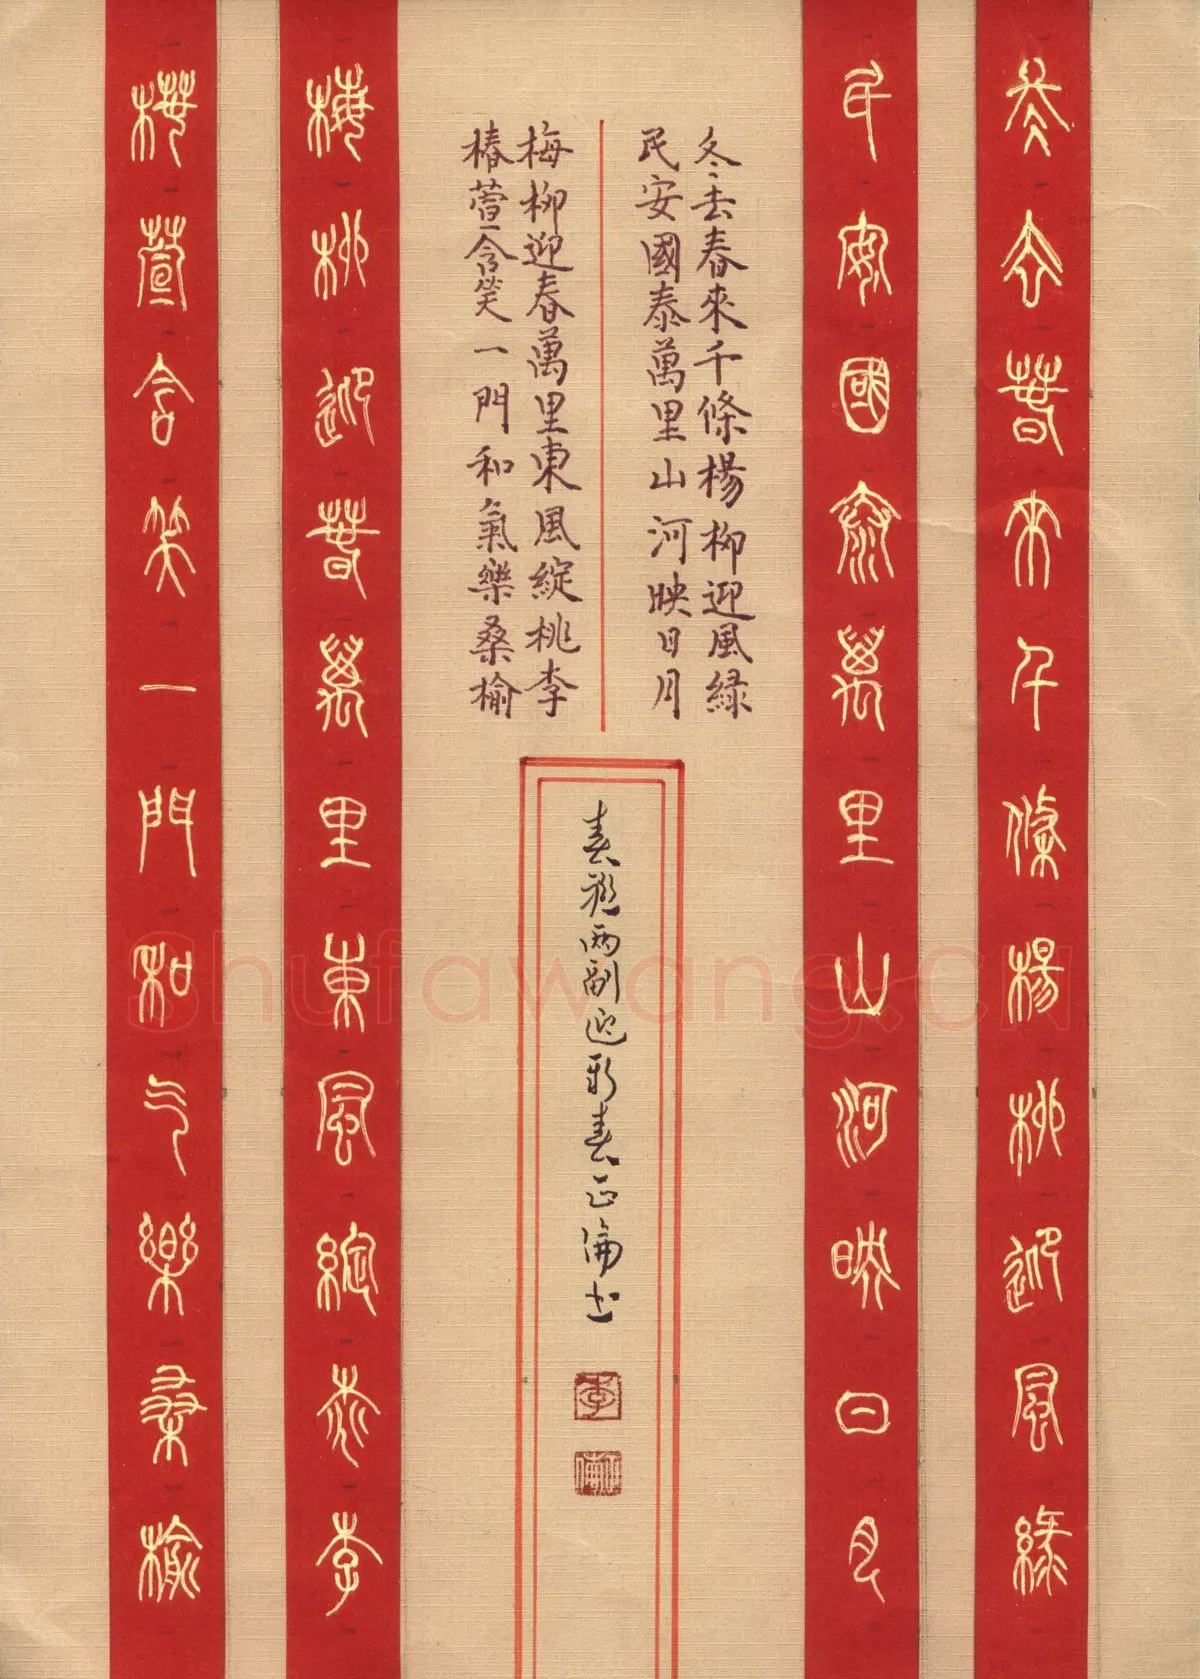 冬去春來千條楊柳迎風綠
民安國泰萬里山河映日月
冬去春來千條楊柳迎風緑
民安國泰萬里山河映日月
梅柳迎春萬里東風綻桃李
椿萱含笑一門和氣樂桑榆
春聯两副迎新春正倫书
李
梅柳迎春萬里東風綻桃李
椿萱含笑一門和气樂桑榆
shufawang.CN